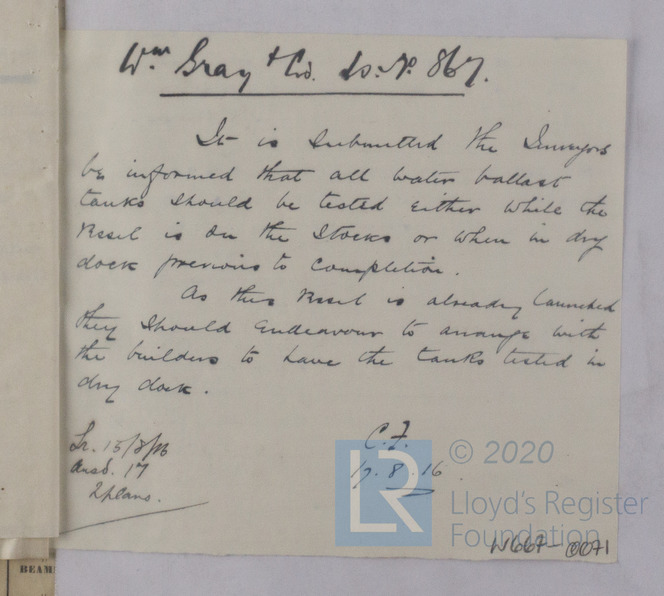 Wm Gray & Co. Ld. No. 867.
It is submitted the Surveyors
be informed that all water ballast
tanks should be tested either while the
Vessel is on the Stocks or when in dry
dock previous to completion.
As this Vessel is already launched
they should endeavour to arrange with
the builders to have the tanks tested in
dry dock.
Lr. 15/8/16
Ansd. 17
2 plans.
C.F.
17.8.16
© 2020
LR
Lloyd's Register
Foundation
W667-0071
BEAM